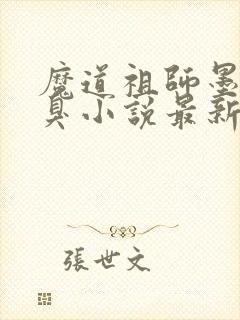 魔道祖師墨
臭小說最新
張世文